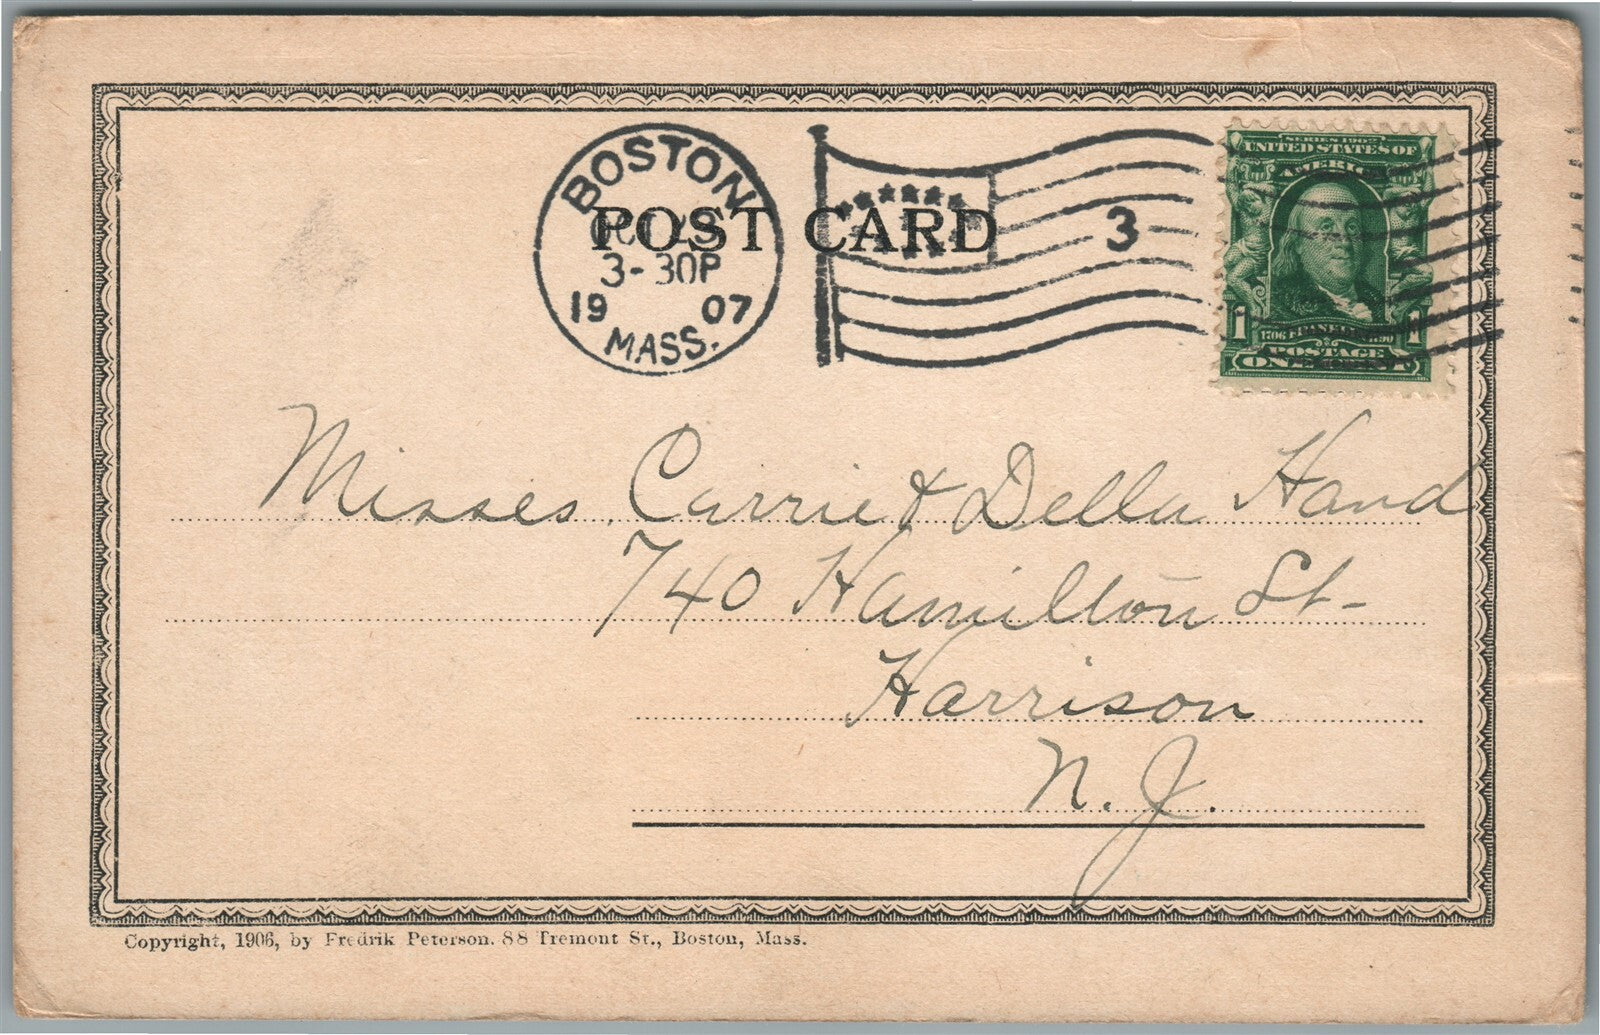 BOSTON
3-30P
19 07
MASS.
POST CARD
3
SERIES 1902
UNITED STATES OF
AMERICA
1 1706 FRANKLIN 1790 1
POSTAGE
Misses Carrie & Della Hand
740 Hamilton St-
Harrison
N. J.
Copyright, 1906, by Fredrik Peterson. 88 Tremont St., Boston, Mass.